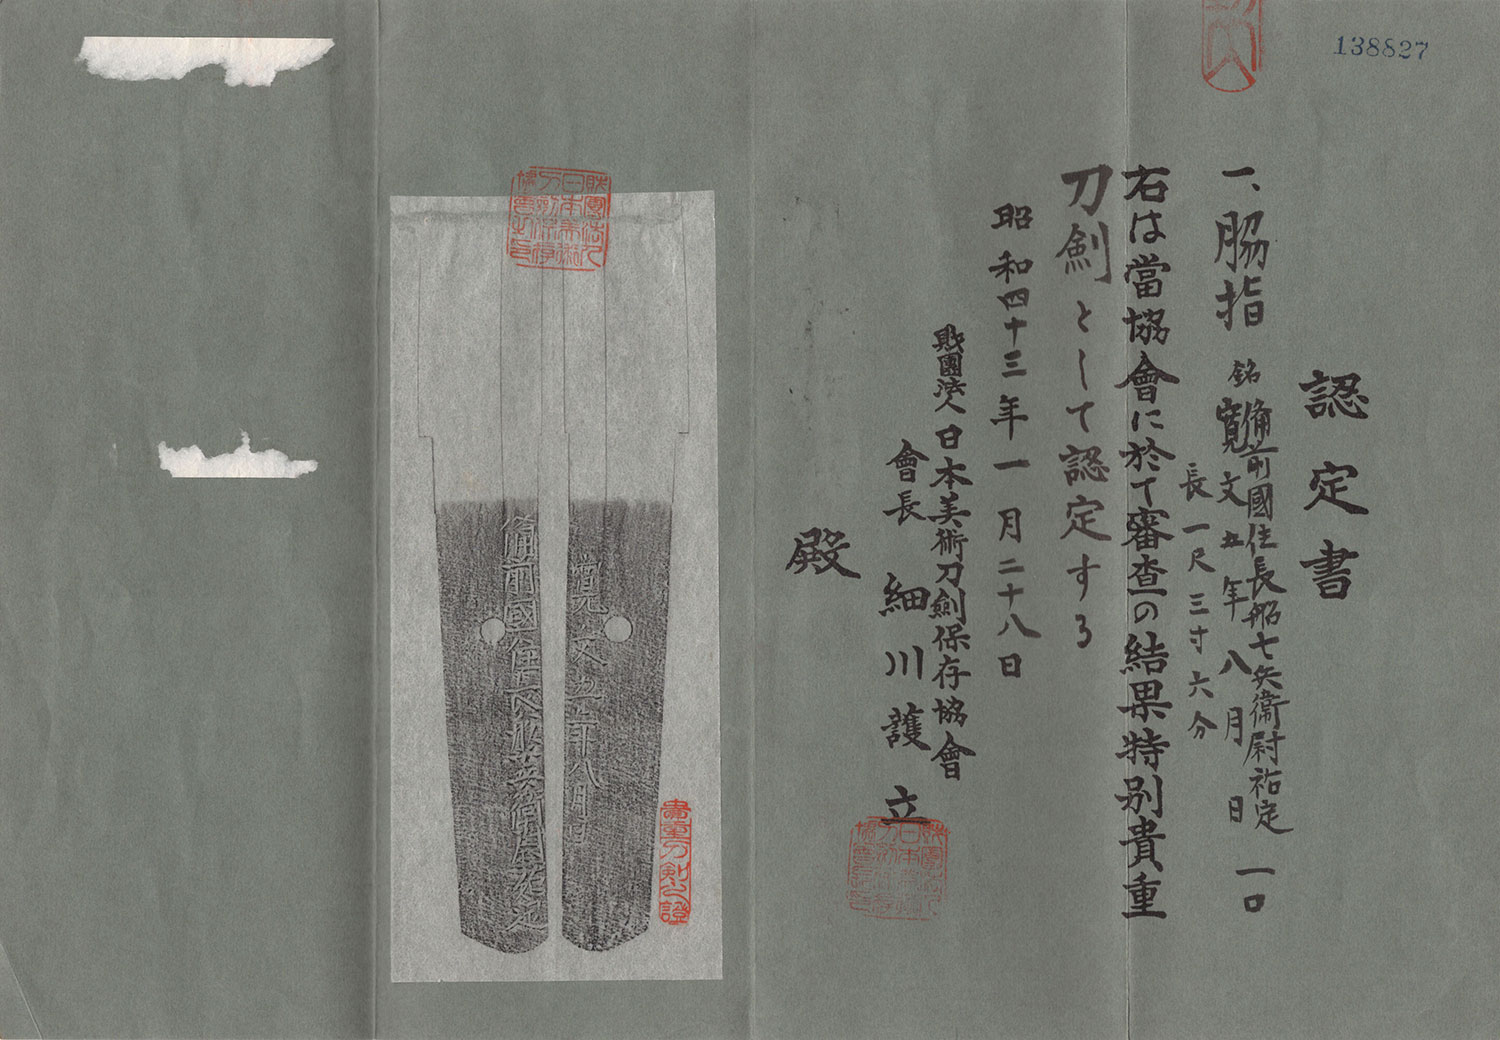 138827
認定書
一、脇指 銘 備前國住長船七兵衛尉祐定 一口
寛文五年八月日
長一尺三寸六分
右は當協會に於て審査の結果特別貴重
刀剣として認定する
昭和四十三年一月二十八日
財團法人日本美術刀劍保存協會
會長 細川護立
殿
財團法人
日本美術
刀剣保存
協會之印
貴重刀剣之證
寛文五年八月日
備前國住長船七兵衛尉祐定